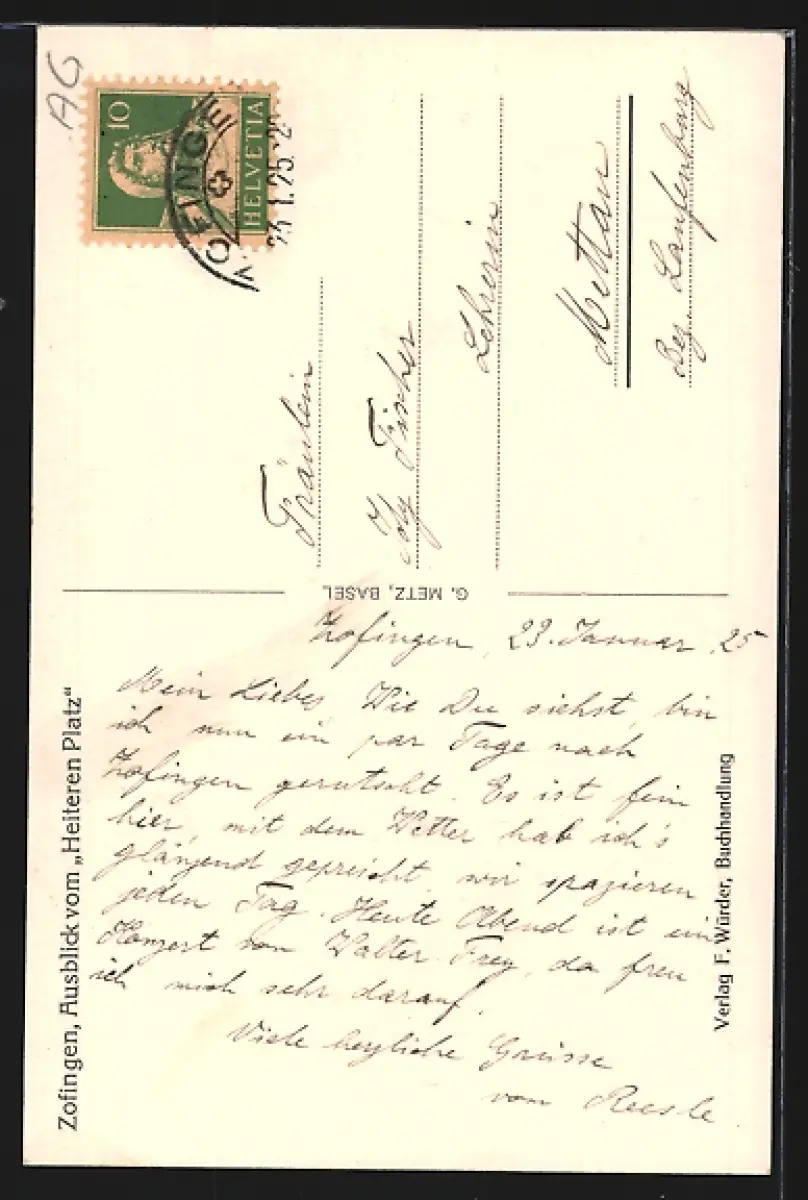 AG
10
HELVETIA
ZOFINGE
25.1.25.2
Fräulein
Idy Fischer
Lehrerin
Mettau
Bez. Laufenburg
G. METZ, BASEL
Zofingen, 23. Januar 25
Mein Liebes Wie Du siehst, bin
ich nun ein par Tage nach
Zofingen gerutscht. Es ist fein
hier, mit dem Wetter hab ich's
glänzend gepreicht, wir spazieren
jeden Tag. Heute Abend ist ein
Konzert von Walter Frey, da freu
ich mich sehr darauf.
Viele herzliche Grüsse
vom Reesle
Zofingen, Ausblick vom „Heiteren Platz“
Verlag F. Würder, Buchhandlung